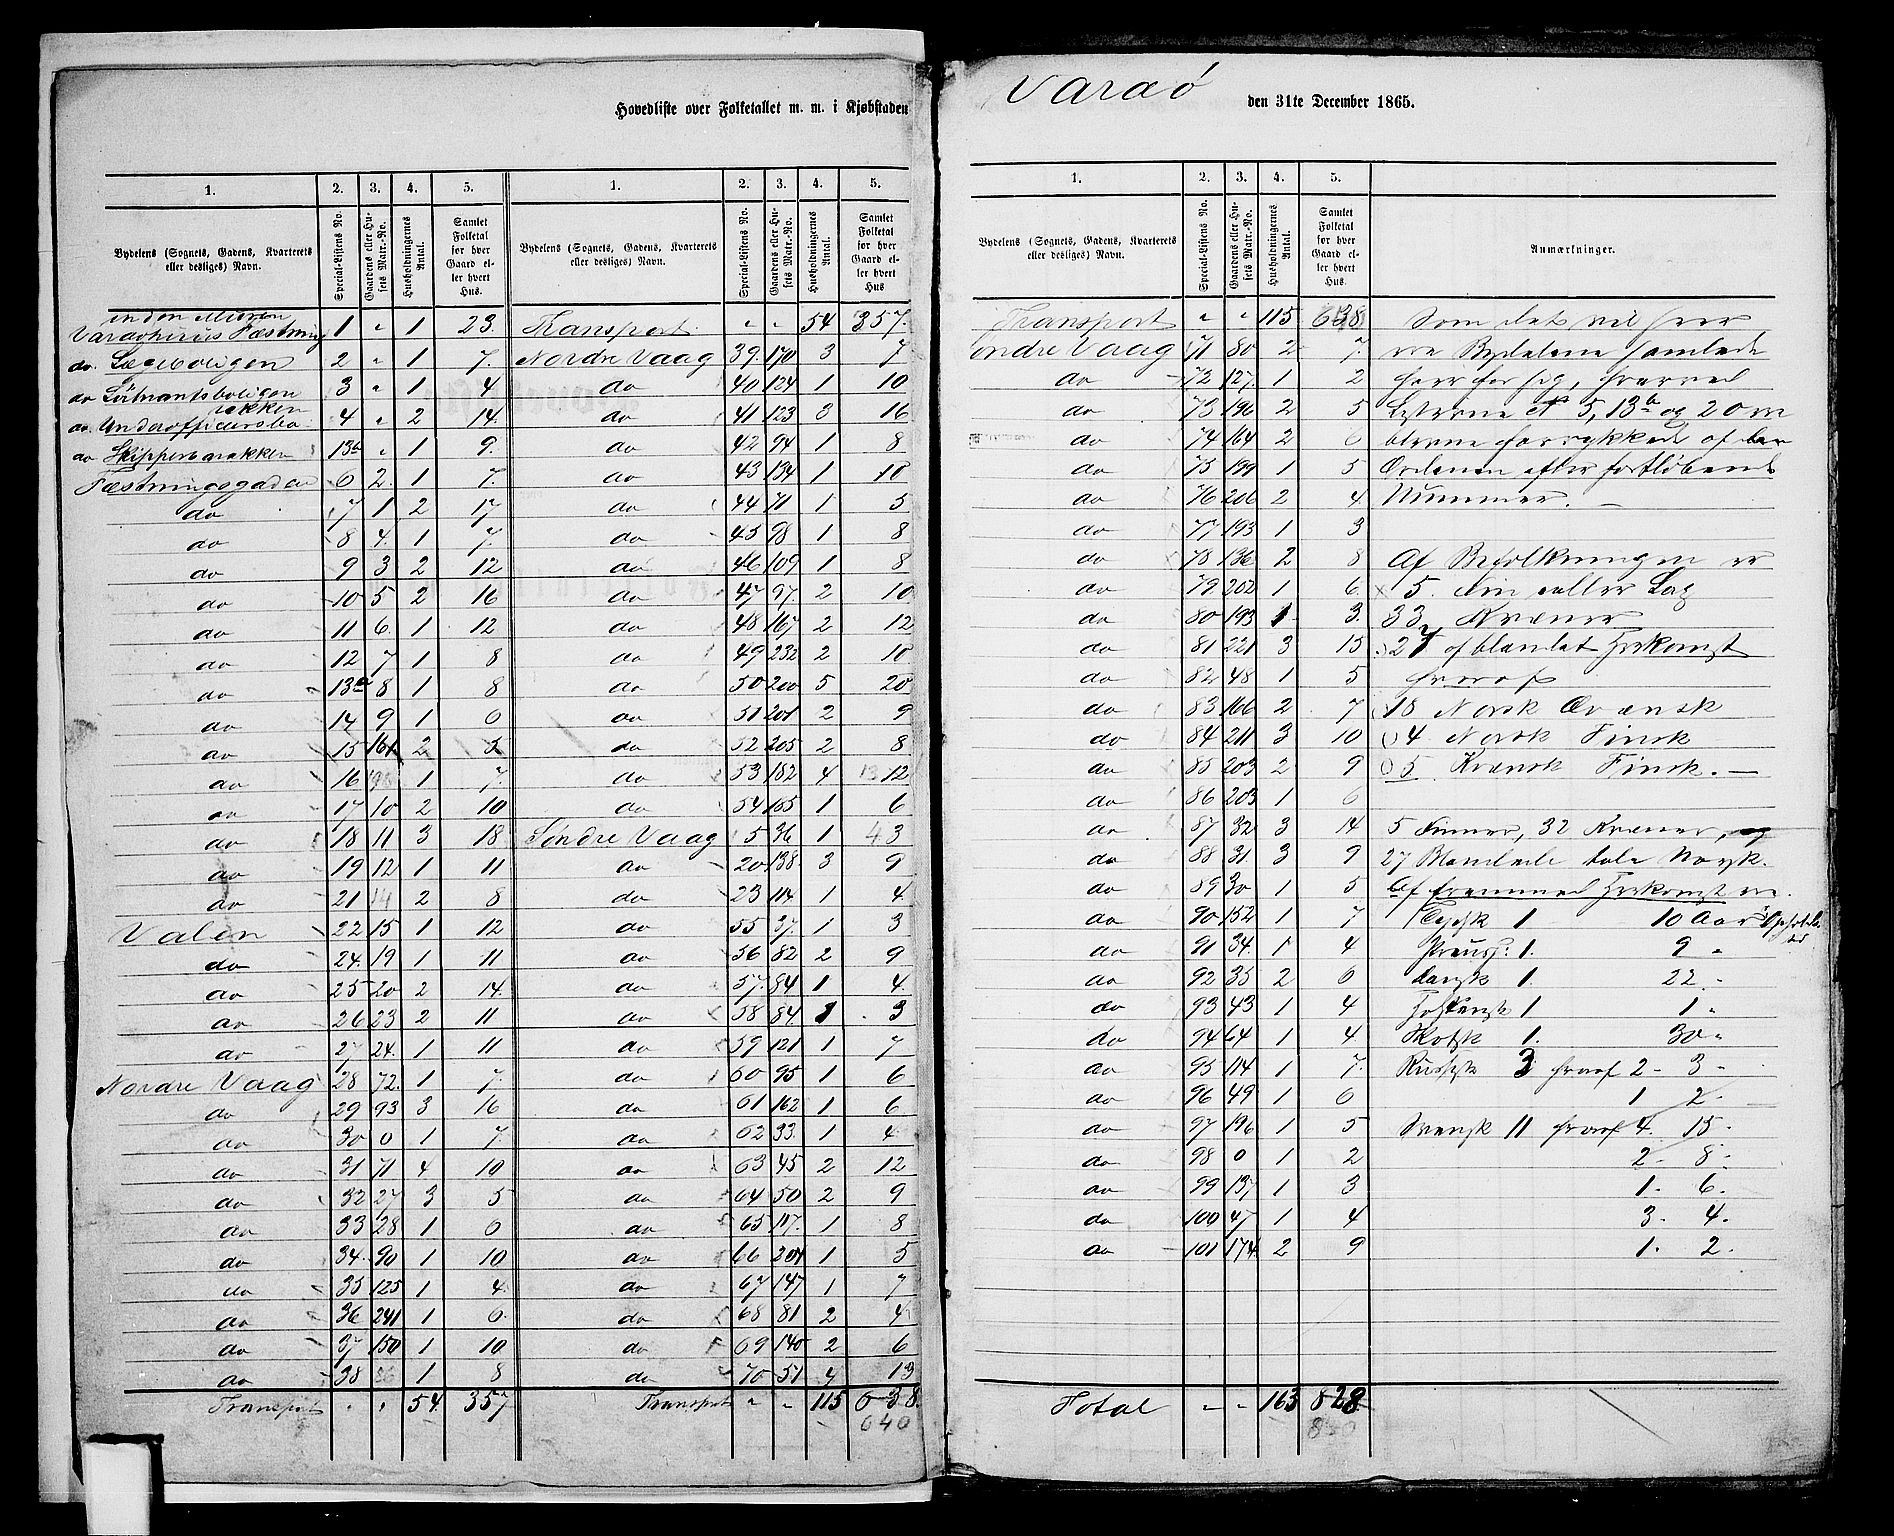 Hovedliste over Folketallet m. m. i Kjøbstaden Vardø den 31te December 1865.
1. 2. 3. 4. 5. 1. 2. 3. 4. 5.
Bydelens (Sognets, Gadens, Kvarterets eller desliges) Navn. Special-Listens No. Gaardens eller Husets Matr.-No. Husholdningernes Antal. Samlet Folketal for hver Gaard eller hvert Hus. Bydelens (Sognets, Gadens, Kvarterets eller desliges) Navn. Special-Listens No. Gaardens eller Husets Matr.-No. Husholdningernes Antal. Samlet Folketal for hver Gaard eller hvert Hus
inden Muren
Vardøhuus Fæstning 1 " 1 23. Transport " " 54 357.
do. Lægeboligen 2 " 1 7. Nordre Vaag 39. 170 3 7
do Løitnantsboligen 3 " 1 4 do 40 124 1 10
do. Underofficersba-rakken 4 " 2 14. do 41 123 3 16
do Skipperbarakken 13b " 1 9. do 42 94 1 8
Fæstningsgaden 6 2. 1 7. do 43 134 1 10
do 7 1 2 17 do 44 71 1 5
do 8 4. 1 7. do 45 98 1 8
do 9 3 2 12 do 46 109 1 8
do 10 5 2 16 do 47 97. 2 10
do 11 6. 1 12 do 48 167 2 12
do 12 7 1 8 do 49 232 2 10
do 13a 8 1 8 do 50 200 5 20
do 14 9 1 6 do 51 201 2 9
do 15 161 2 5 do 52 205 2 8
do 16 1 7. do 53 182 4 12
do 17 10 2 10 do 54 165 1 6
do 18 11 3 18 Søndre Vaag 5 36 1 43
do 19 12 1 11 do 20 138. 3 9
do 21 14 2 8 do 23 114 1 4
Valen 22 15 1 12 do 55 37. 1 3
do 24. 19 1 11 do 56 82 2 9
do 25 20 2 14. do 57. 84 1 4.
do 26 23 2 11 do 58 84. 1 3
do 27 24. 1 11 do 59 121 1 7
Nordre Vaag 28 72. 1 7. do 60 95 1 6
do 29 93 3 16 do 61 162 1 6
do 30 0 1 7. do 62 33. 1 4.
do 31 71 4 10 do 63 45 2 12
do 32 27 3 5 do 64 50 2 9
do 33 28 1 6 do 65 117. 1 8
do 34. 90 1 10 do 66 204 1 5
do 35 125 1 4. do 67 147 1 7
do 36 241 1 6. do 68 81 2 4
do 37 150 1 10 do 69 140 2 6
do 38 86 1 8 do 70 51 4 13
Transport " " 54. 357 Transport " " 115 638.
640
1. 2. 3. 4. 5.
Bydelens (Sognets, Gadens, Kvarterets eller desliges) Navn. Special-Listens No. Gaardens eller Husets Matr.-No. Husholdningernes Antal. Samlet Folketal for hver Gaard eller hvert Hus. Anmærkninger.
Transport " " 115 638 Som det vil sees
Søndre Vaag 71 80 2 7. ere Bydelene samlede
do 72 127. 1 2 hver for sig, hvorved
do 73 196 2 5 Listerne No 5, 13b og 20 m
do 74 164 2 6 blevne forrykkede af
do 75 199 1 5 Ordenen efter fortløbende
do 76 206 2 4 Nummer. —
do 77 193 1 3
do 78 136 2 8 Af Befolkningen er
do 79. 202 1 6. 5. Fin eller Lap
do 80 193 1 3. 33 Kvæner
do 81 221 3 15 27 af blandet Herkomst
do 82 48 1 5 hvoraf
do 83 166 2 7 18 Norsk Qvænsk
do 84 211 3 10 4 Norsk Finsk
do 85 203 2 9 5. Kvænsk Finsk. —
do 86 203 1 6
do 87 32 3 14 5 Finner, 32 Kvæner, og
do 88 31. 3 9 27 Blandede tale Norsk.
do 89 30 1 5 Af fremmed Herkomst ere.
do 90 152 1 7 Tydsk 1 10 Aars Ophold
do 91 34. 1 4 Preuss: 1. 9 "
do 92 35 2 6 dansk 1. 22 "
do 93 43 1 4 1 1 "
do 94 64 1 4 Skotsk 1. 30 "
do 95 114 1 7. Russisk 3 hvoraf 2 - 3 "
do 96 49 1 6 1 2 -
do 97 196 1 5 Svensk 11 hvoraf 4. 15 -
do 98 0 1 2 2 - 8 -
do 99 137 1 3 1. 6.
do 100 47 1 4 3 - 4.
do 101 174. 2 9 1. 2.
Total " " 163 828
830